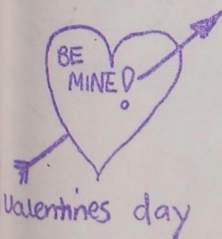 BE
MINE!
Valentines day